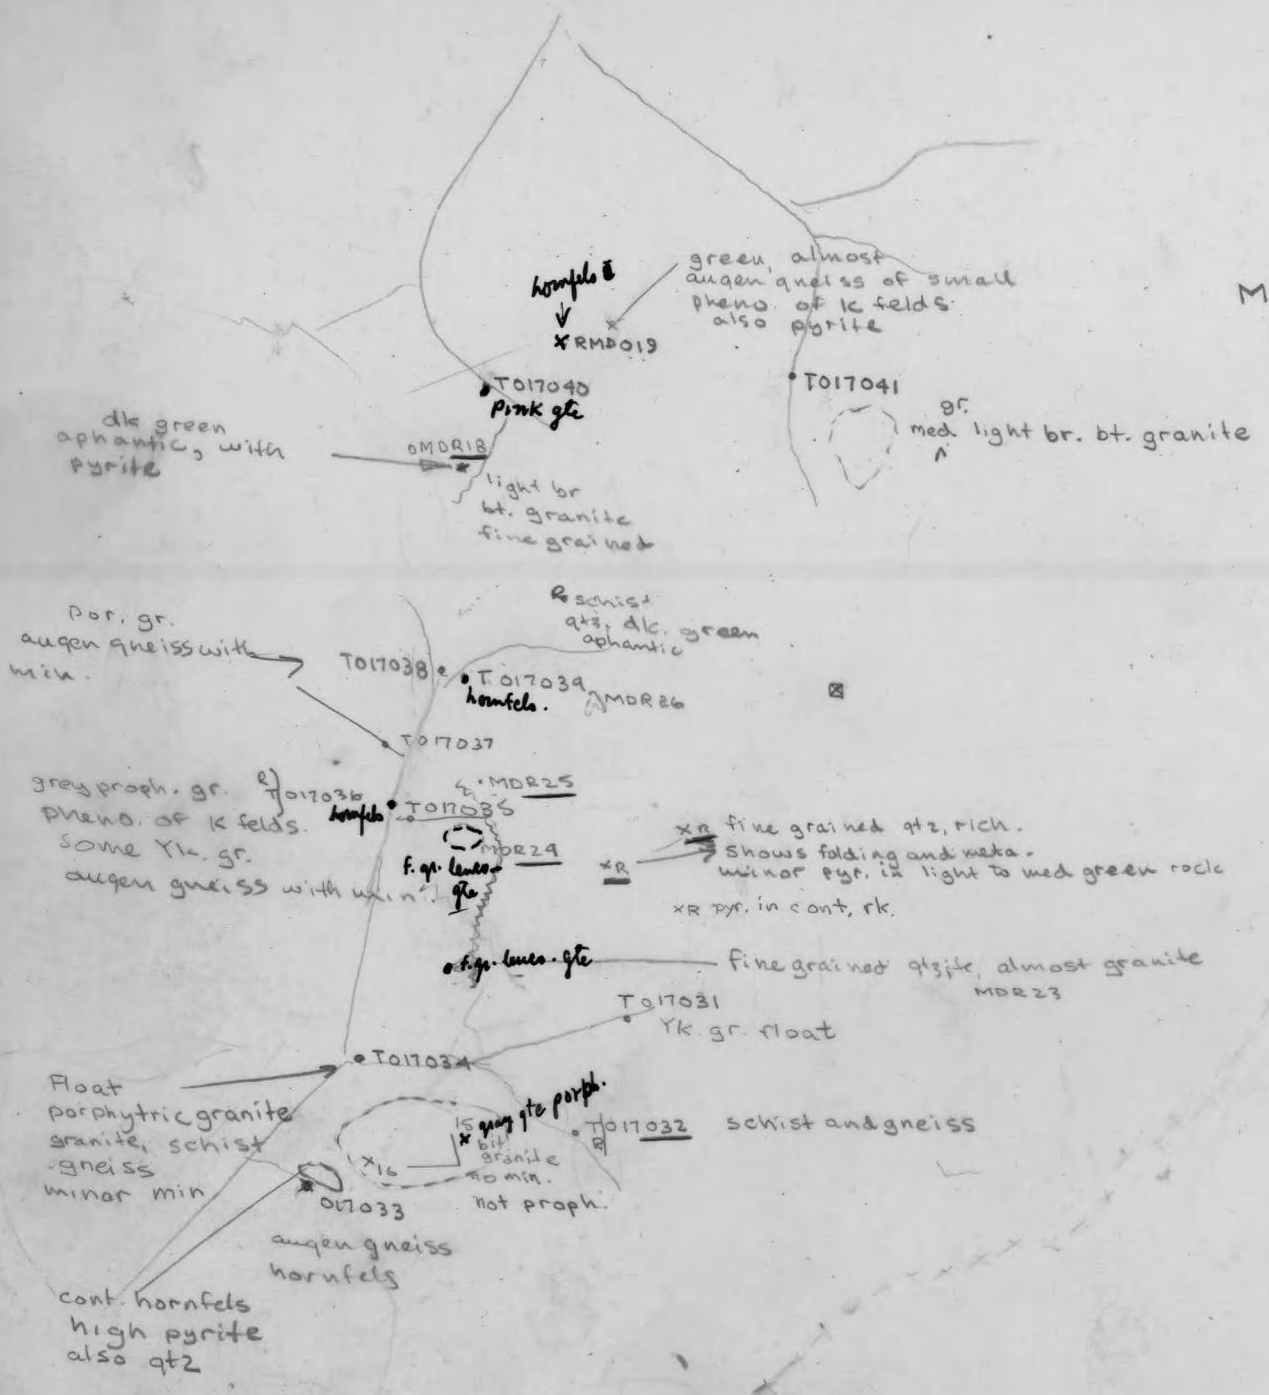 green, almost
augen gneiss of small
pheno. of K felds.
also pyrite
M
hornfels
x RMD019
T017040
Pink gte
T017041
gr.
med light br. bt. granite
^
dk green
aphantic, with
pyrite
MDR18
light br
bt. granite
fine grained
Por. gr.
augen gneiss with
min.
schist
qtz. dk. green
aphantic
T017038
T.017039
hornfels.
MDR26
T017037
grey proph. gr.
pheno. of K felds.
some Yk. gr.
augen gneiss with min.
R
T017036
hornfels
T017035
MDR25
MDR24
f. gr. leuco-
gte
xR
xR fine grained qtz, rich.
shows folding and meta.
minor pyr. in light to med green rock
xR pyr. in cont, rk.
f. gr. leuco. gte
fine grained qtzite, almost granite
MDR23
T017031
Yk. gr. float
T017034
Float
porphytric granite
granite, schist
gneiss
minor min
15 gray gte porph.
x bit
granite
no min.
not proph.
x16
T017032
R
schist and gneiss
017033
augen gneiss
hornfels
cont. hornfels
high pyrite
also qtz